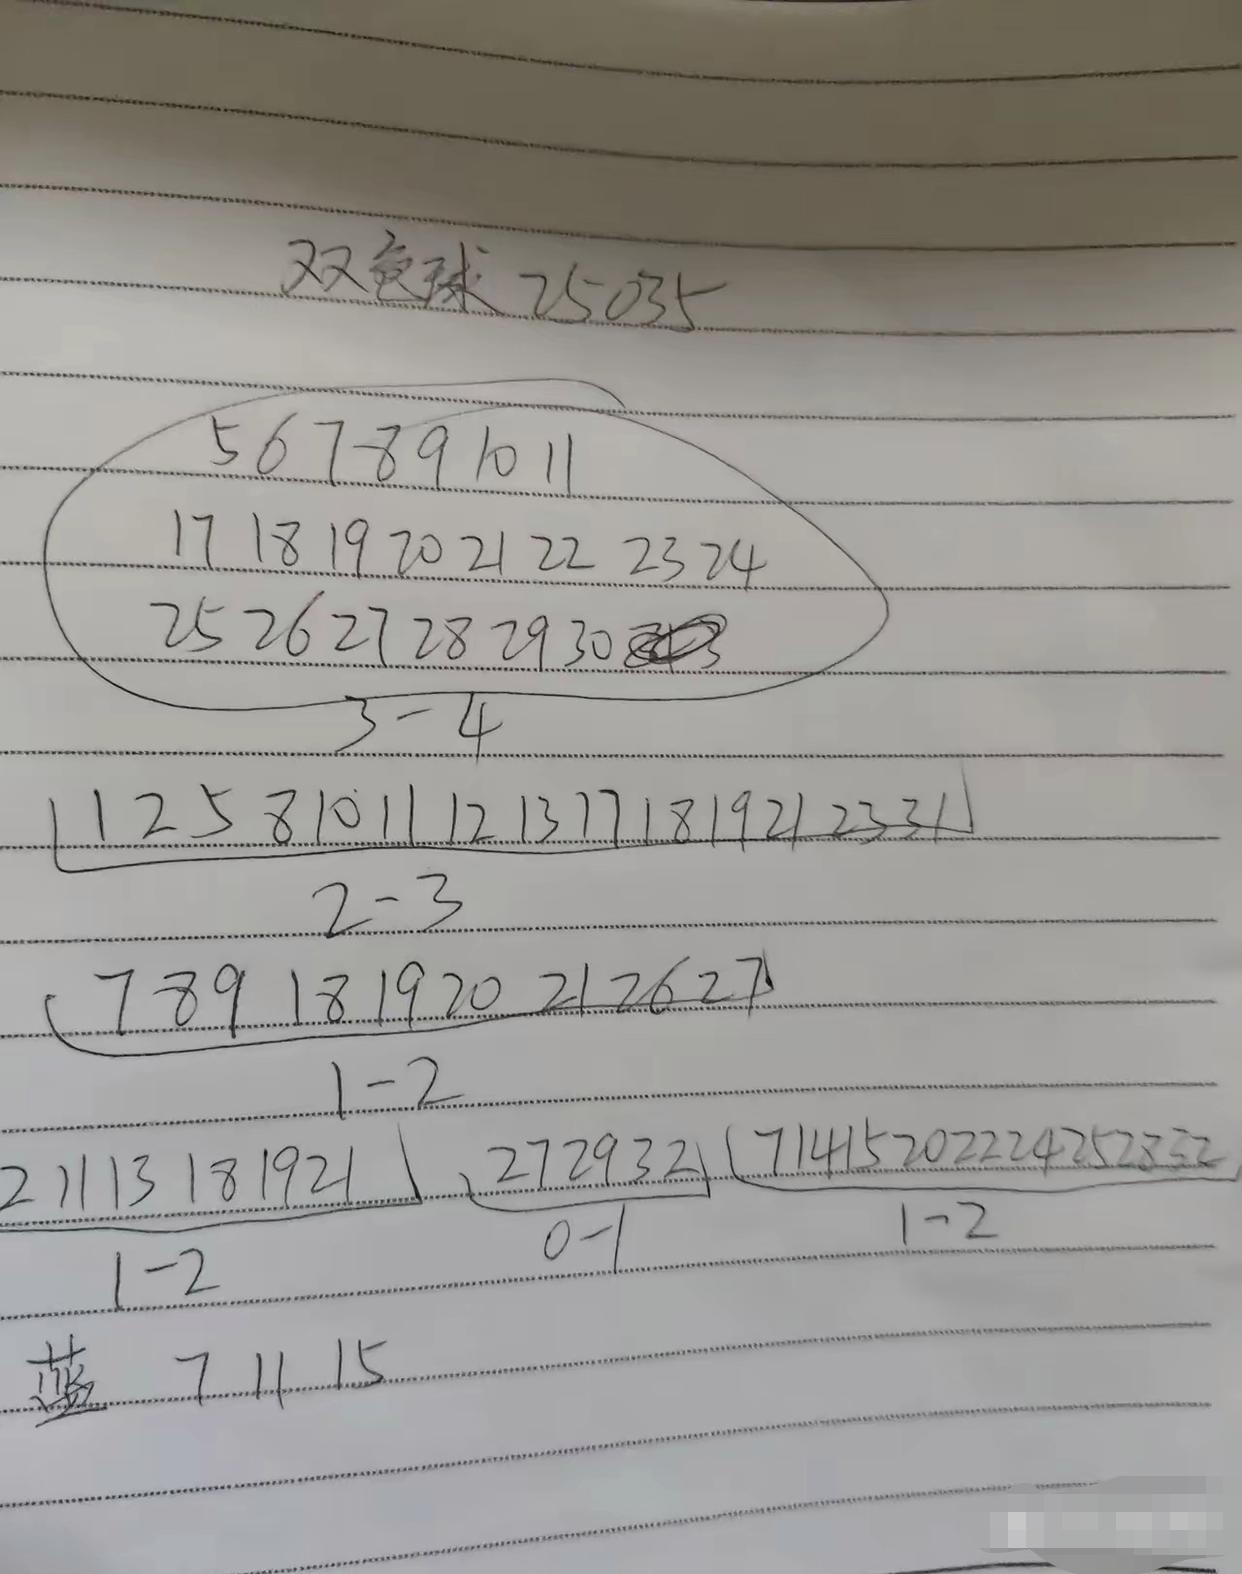 双色球 25035
5 6 7 8 9 10 11
17 18 19 20 21 22 23 24
25 26 27 28 29 30
3-4
1 2 5 8 10 11 12 13 17 18 19 21 23 31
2-3
7 8 9 18 19 20 21 26 27
1-2
2 11 13 18 19 21 27 29 32 7 14 15 20 22 24 25 28 32
1-2 0-1 1-2
蓝 7 11 15